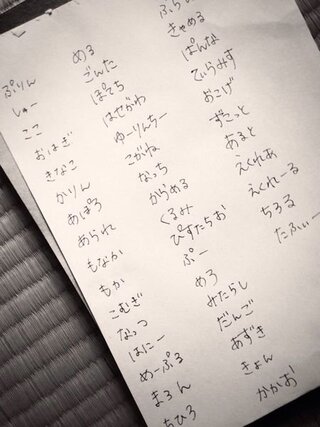 ぷりん
しゅー
ここ
おはぎ
きなこ
かりん
あぽろ
あられ
もなか
もか
こむぎ
なっつ
はにー
めーぷる
まろん
ちひろ
める
ごんた
はせがわ
ゆーりんちー
こがね
なっち
からめる
くるみ
ぴすたちお
ぷー
めろ
みたらし
だんご
あずき
きょん
かかお
きゃめる
ぱんな
てぃらみす
おこげ
ずこっと
あると
えくれあ
えくれーる
ちろる
たふぃー